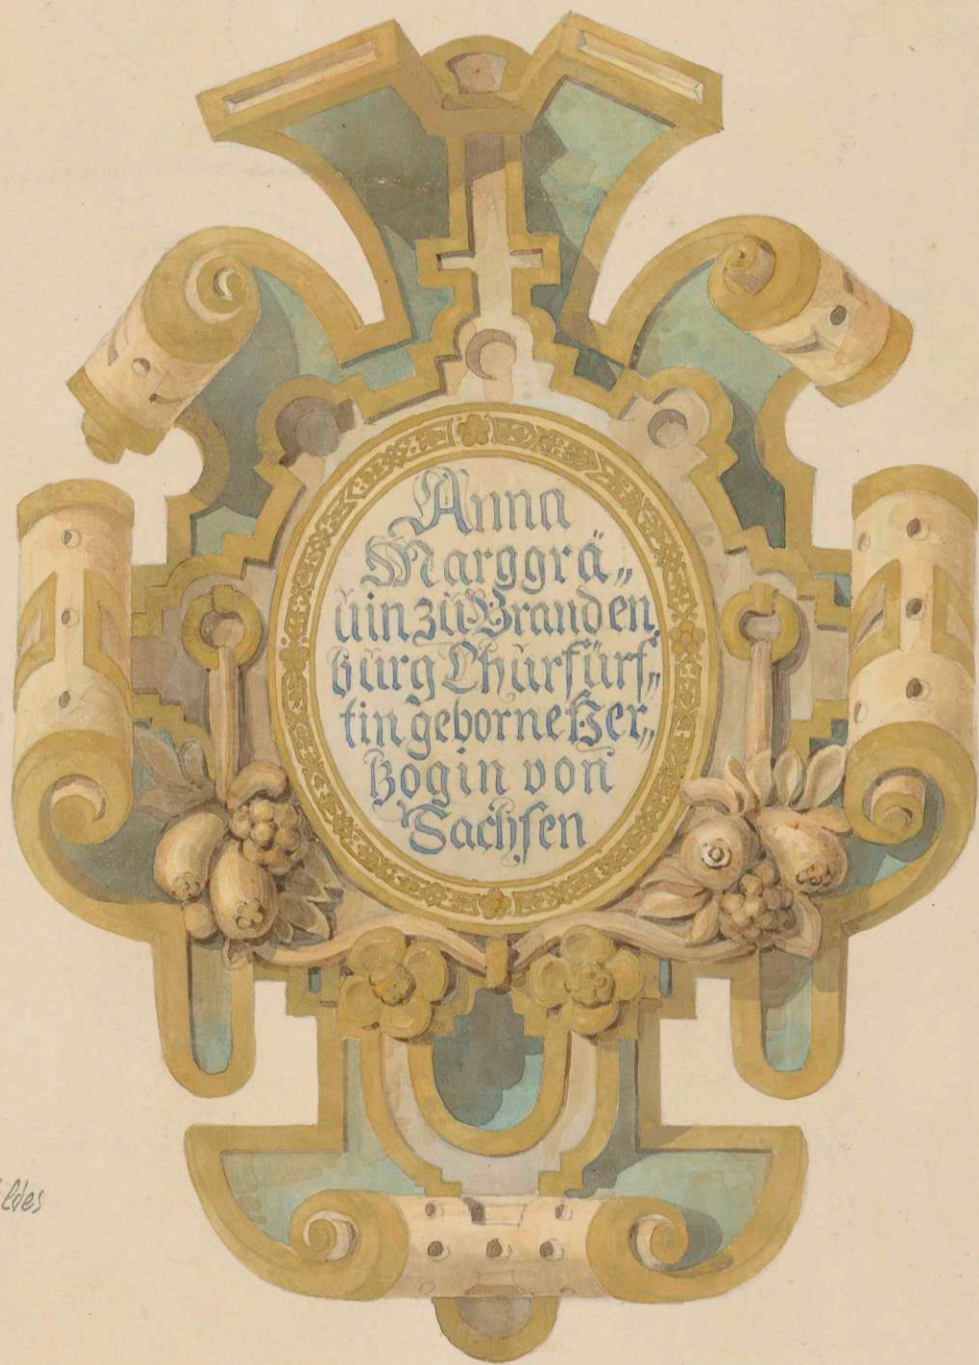 Anna
Marggrä„
uin zu Branden„
burg Churfürs„
tin geborne Her„
zogin von
Sachsen